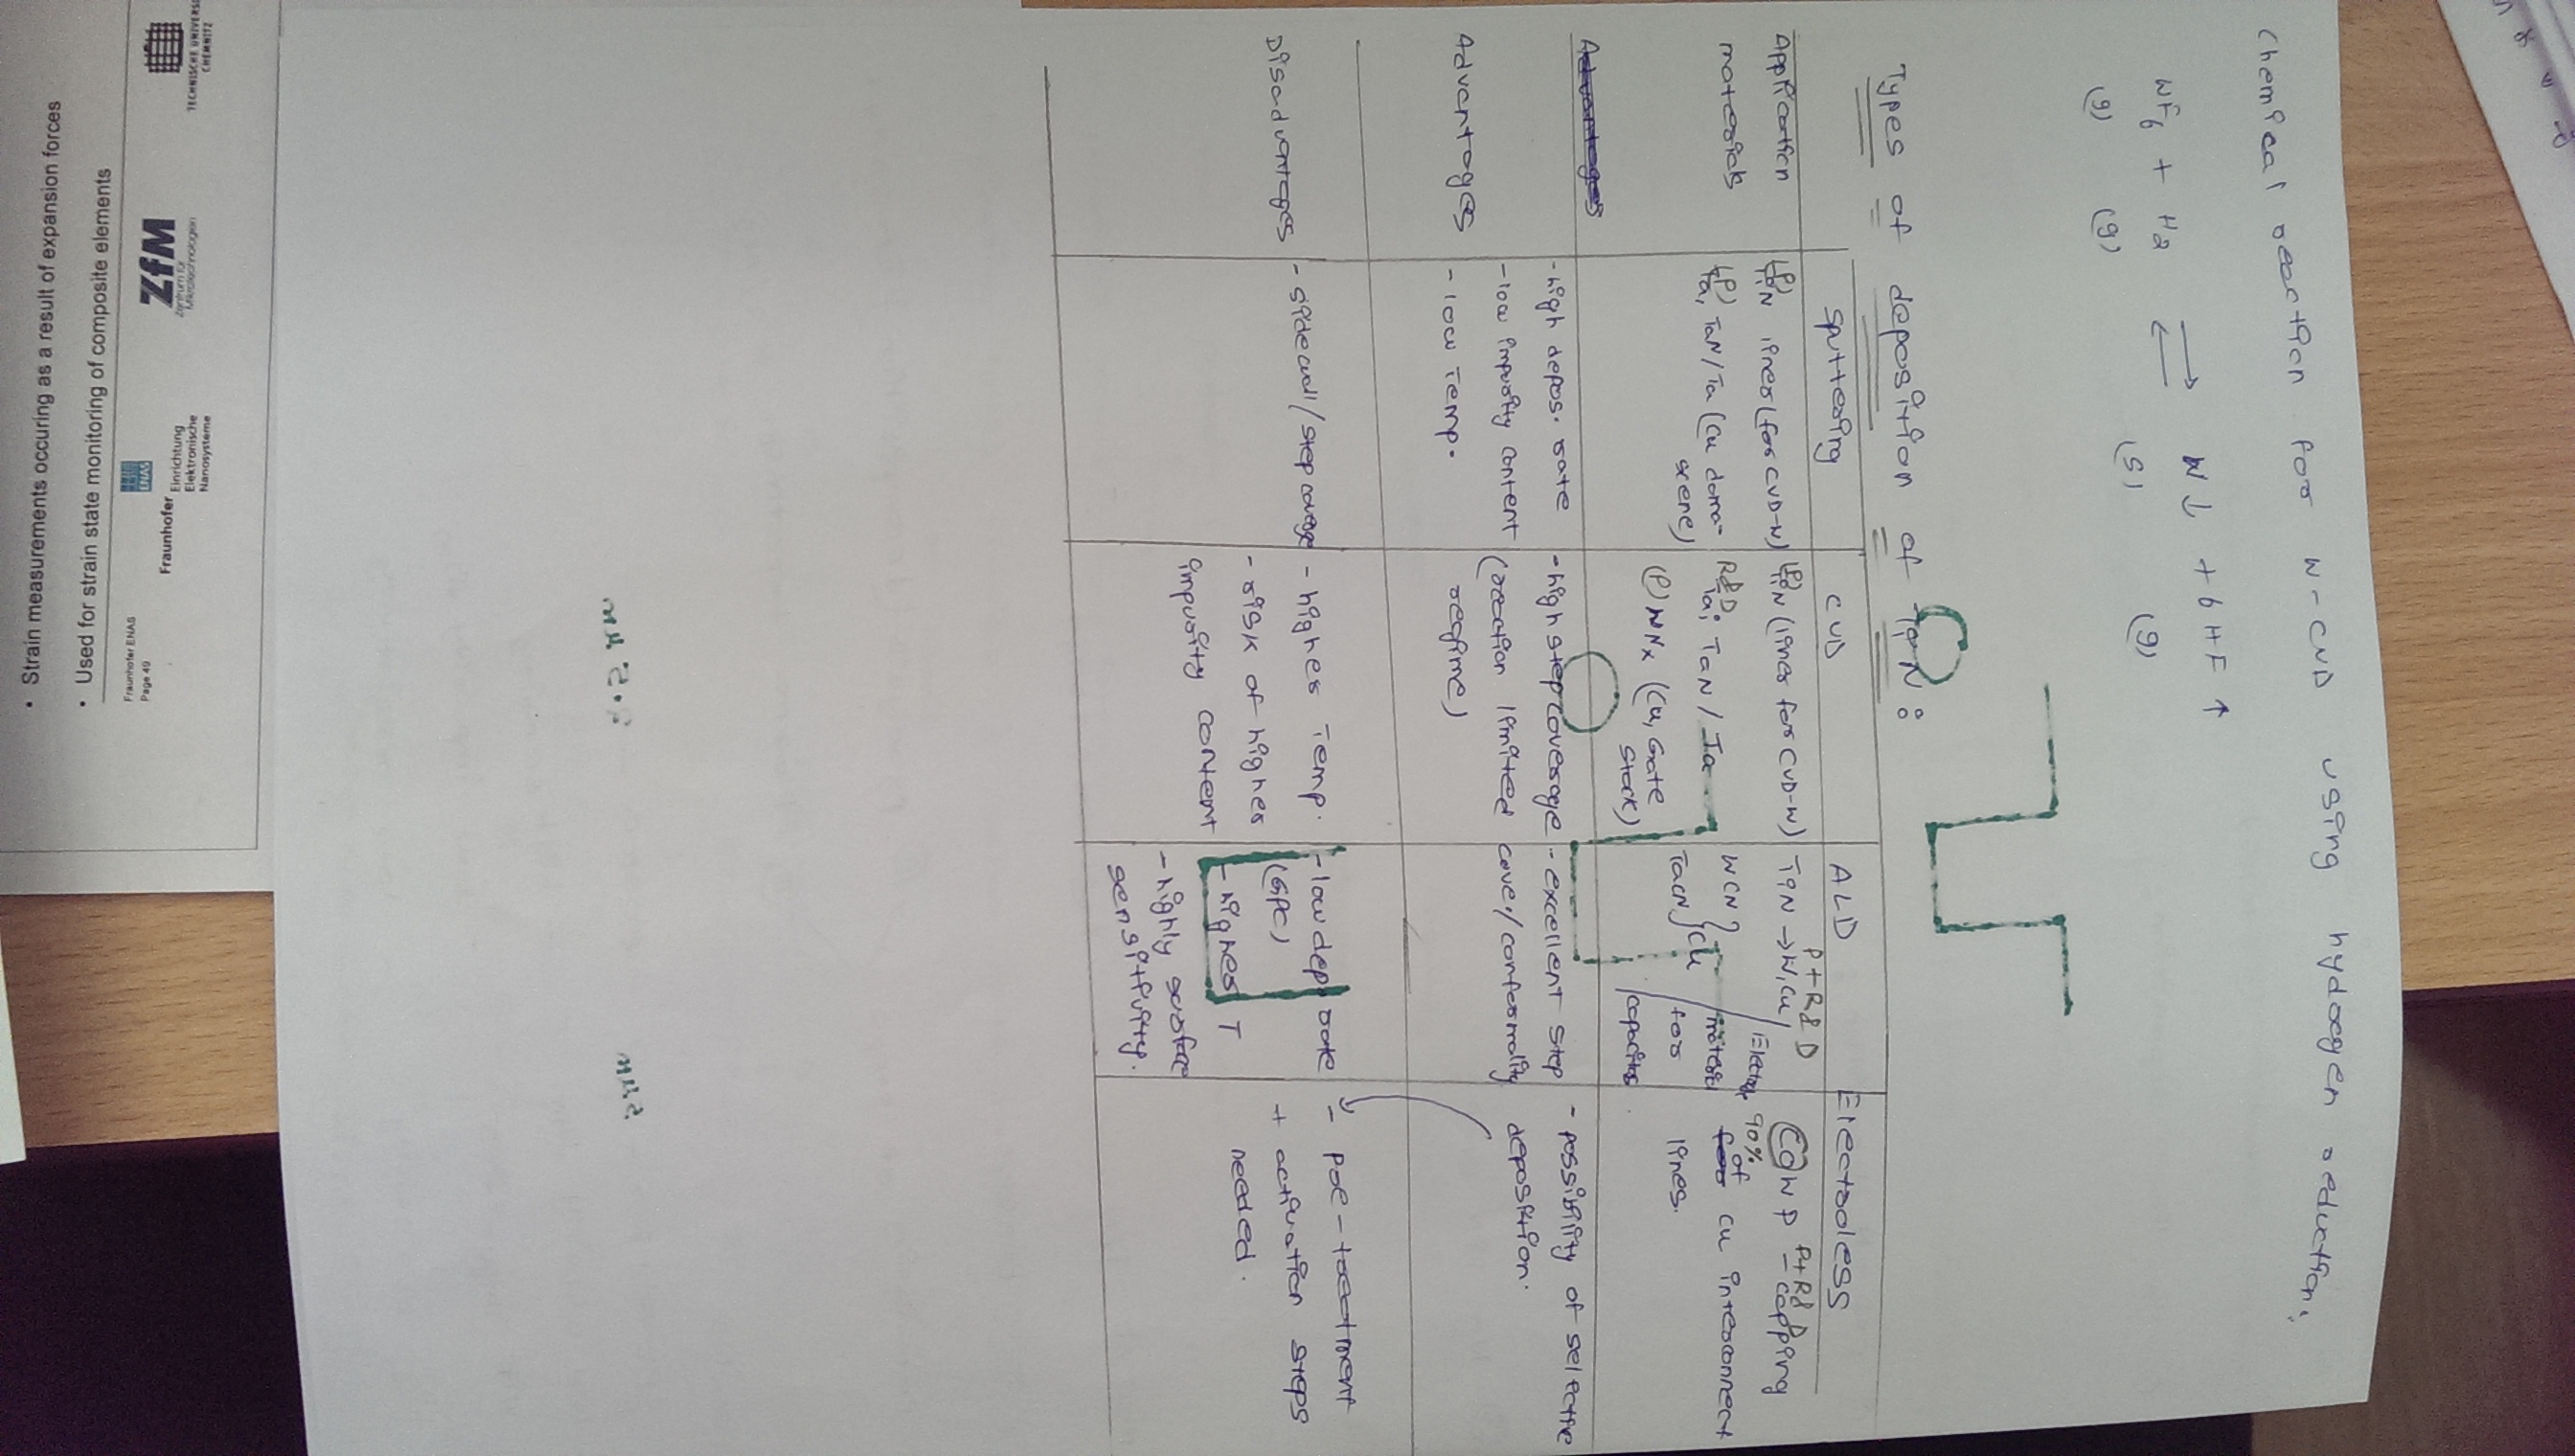 Chemical reaction for W-CVD using hydrogen reduction.
WF6 + H2 ⇌ W ↓ + 6 HF ↑
(g) (g) (s) (g)
Types of deposition of TiN :
Sputtering CVD ALD Electroless
Application materials
(P) TiN liner (for CVD-W)
(P) Ta, TaN/Ta (Cu dama-
scene)
(P) TiN (liner for CVD-W)
R&D
Ta, TaN / Ta
(P) WNx (Cu, Gate
Stack)
P + R&D
TiN → W, Cu
WCN
TaCN } Cu
Electrode
material
for
capacitor
P+R&D
CoWP - capping
90%
of Cu interconnect
lines.
Advantages
Advantages
- high depos. rate
- low impurity content
- low Temp.
- high step coverage
(reaction limited
regime)
- excellent step
cover/ conformality
- possibility of selective
deposition.
Disadvantages
- sidewall/ step coverage
- higher Temp.
- risk of higher
impurity content
- low dep rate
(GPC)
- higher T
- highly surface
sensitivity.
- pre-treatment
+ activation steps
needed.
2.5 µm
5 µm
• Strain measurements occuring as a result of expansion forces
• Used for strain state monitoring of composite elements
Fraunhofer ENAS
Page 49
ENAS
Fraunhofer Einrichtung
Elektronische
Nanosysteme
ZfM
Zentrum für
Mikrotechnologien
TECHNISCHE UNIVERS
CHEMNITZ